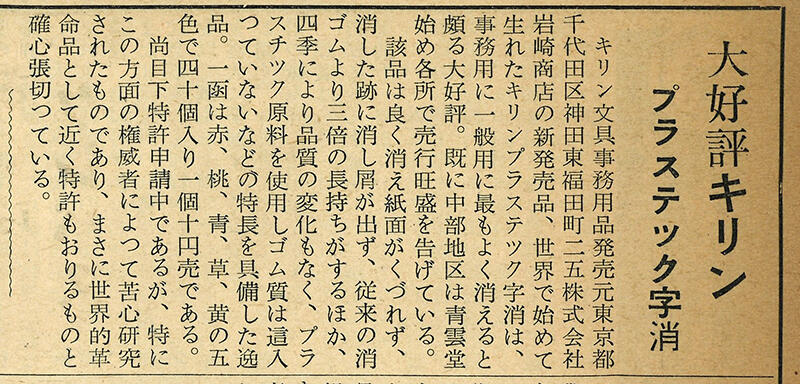 大好評キリン
プラステック字消
キリン文具事務用品発売元東京都
千代田区神田東福田町二五株式会社
岩崎商店の新発売品、世界で始めて
生れたキリンプラステツク字消は、
事務用に一般用に最もよく消えると
頗る大好評。既に中部地区は青雲堂
始め各所で売行旺盛を告げている。
該品は良く消え紙面がくづれず、
消した跡に消し屑が出ず、従来の消
ゴムより三倍の長持ちがするほか、
四季により品質の変化もなく、プラ
スチツク原料を使用しゴム質は這入
つていないなどの特長を具備した逸
品。一函は赤、桃、青、草、黄の五
色で四十個入り一個十円売である。
尚目下特許申請中であるが、特に
この方面の権威者によつて苦心研究
されたものであり、まさに世界的革
命品として近く特許もおりるものと
確心張切つている。